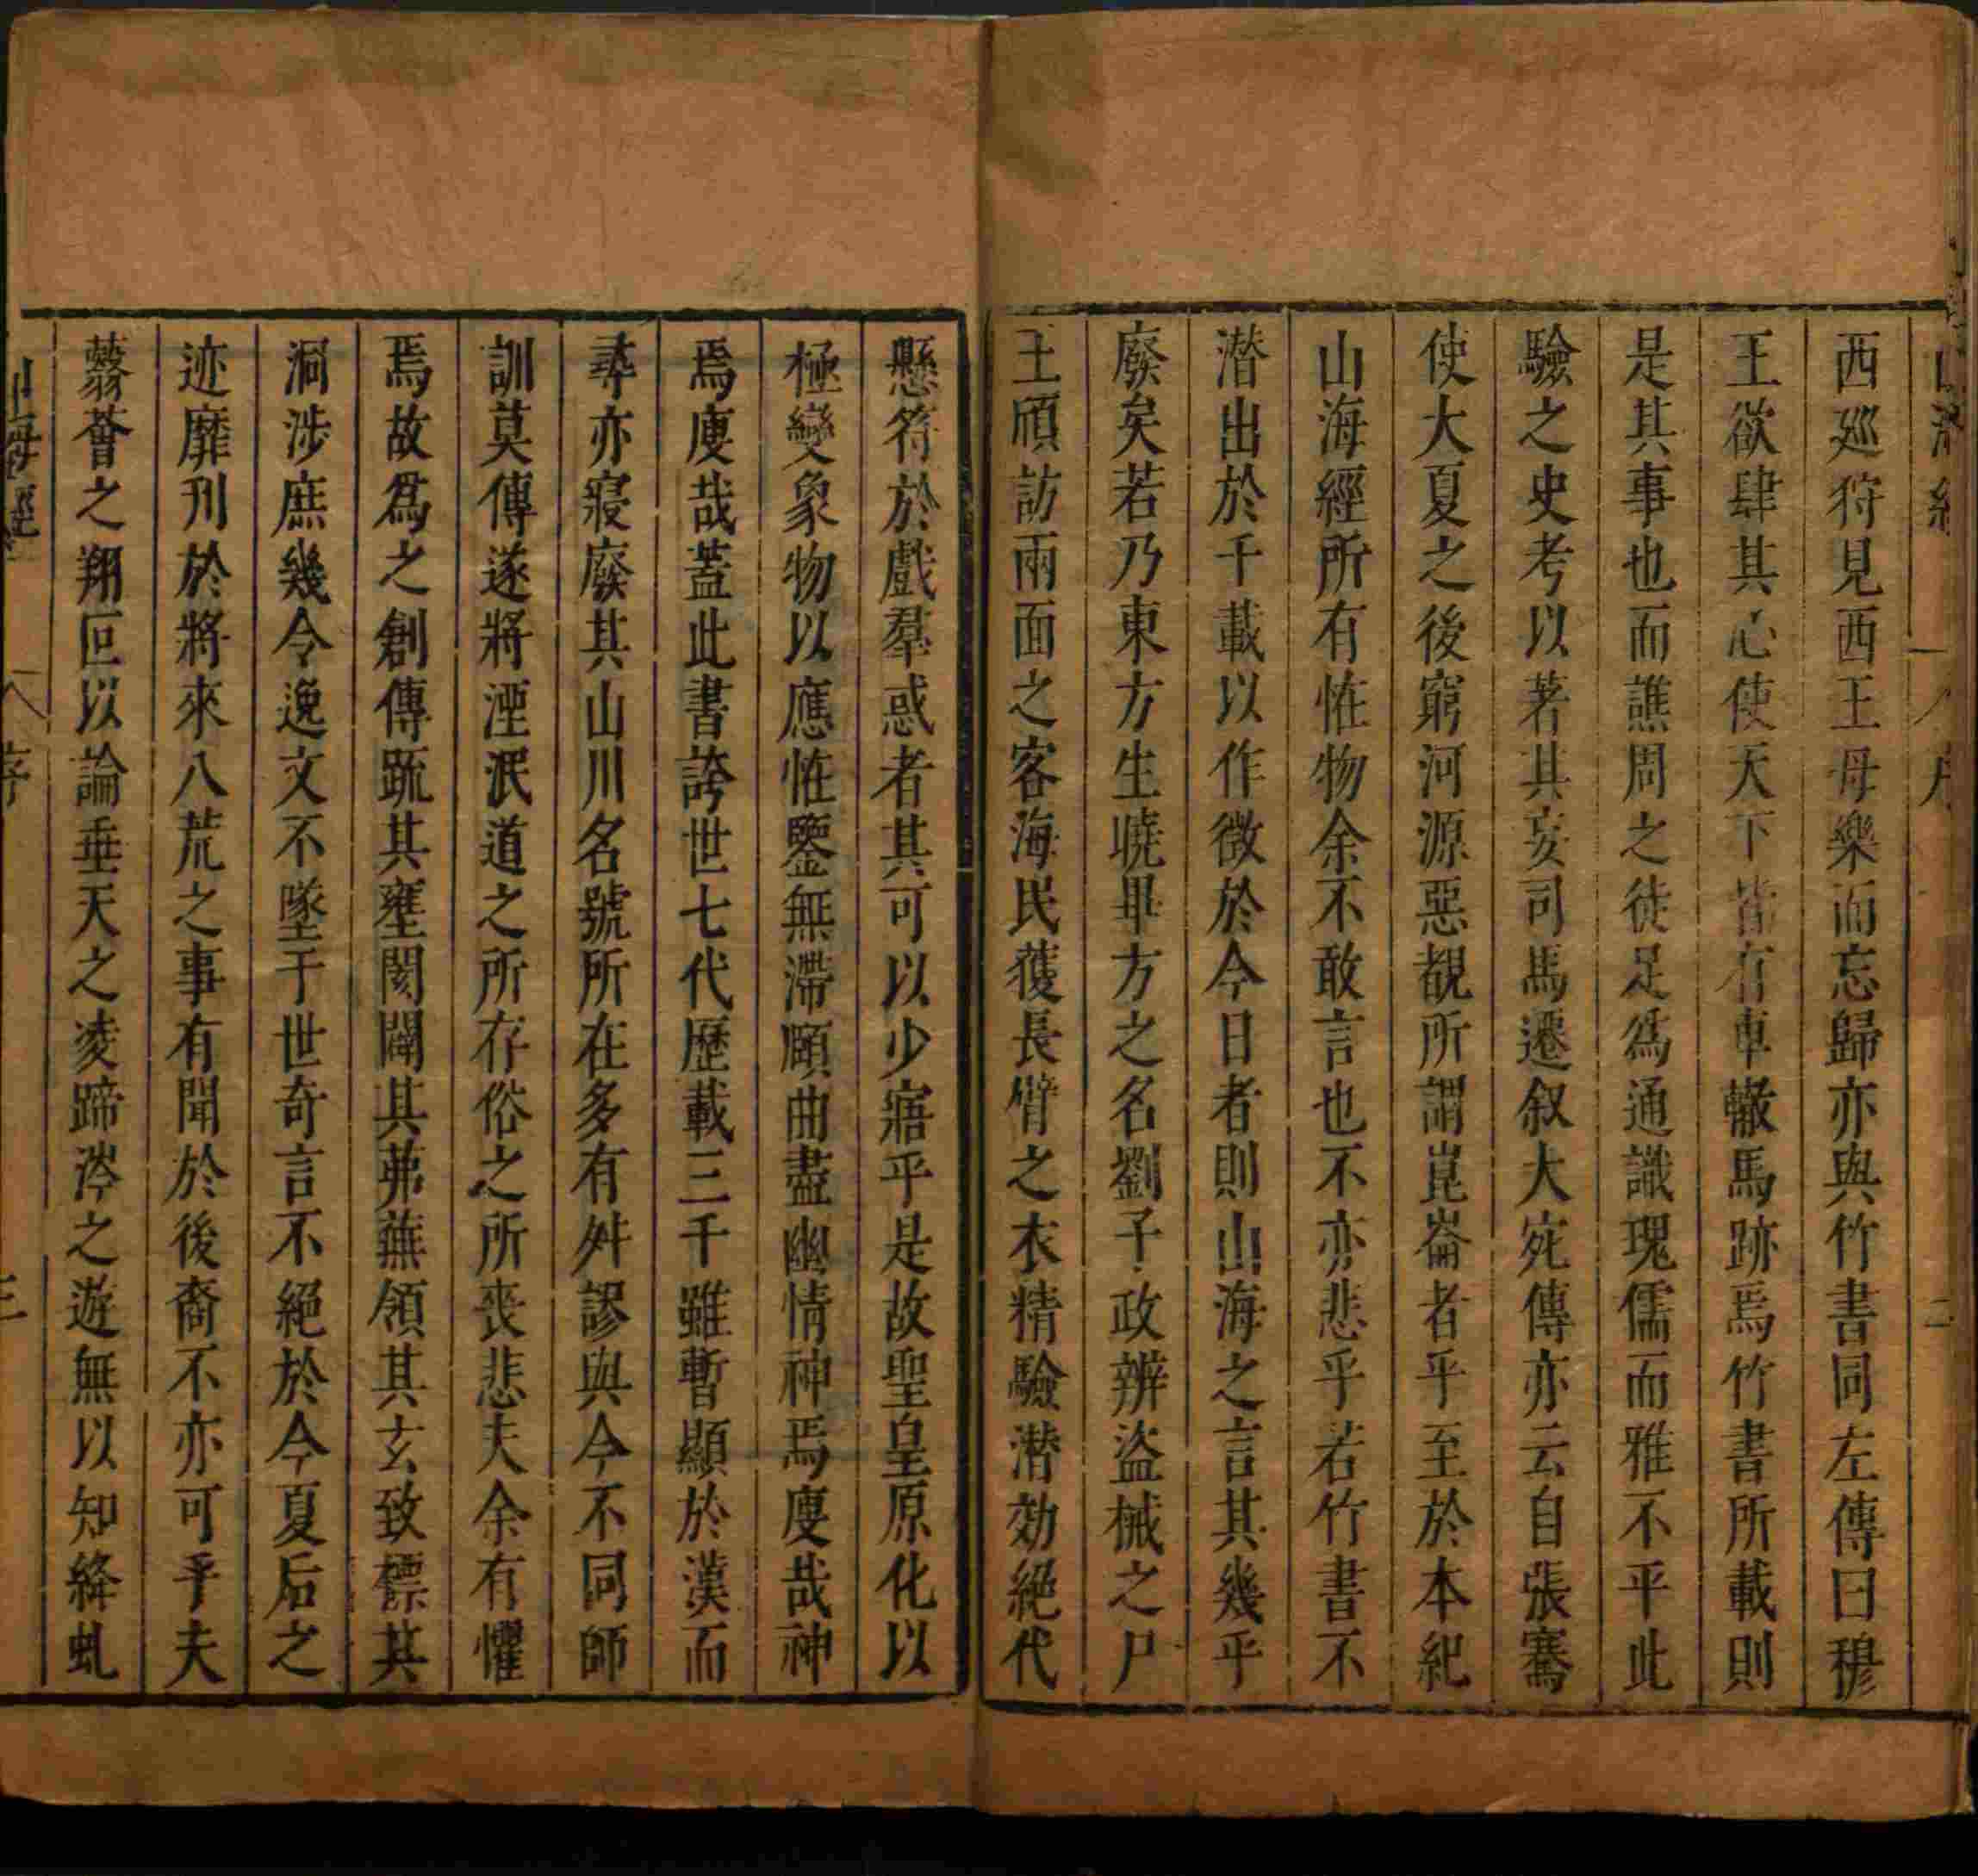 山海經 序 二
西廵狩見西王母樂而忘歸亦與竹書同左傳曰穆
王欲肆其心使天下皆有車轍馬跡焉竹書所載則
是其事也而譙周之徒足爲通識瑰儒而雅不平此
驗之史考以著其妄司馬遷叙大宛傳亦云自張騫
使大夏之後窮河源惡覩所謂崑崙者乎至於本紀
山海經所有恠物余不敢言也不亦悲乎若竹書不
潜出於千載以作徵於今日者則山海之言其幾乎
廢矣若乃東方生曉畢方之名劉子政辨盜械之尸
王頎訪兩面之客海民獲長臂之衣精驗潜効絕代
懸符於戲羣惑者其可以少寤乎是故聖皇原化以
極變象物以應恠鑒無滯賾曲盡幽情神焉廋哉神
焉廋哉蓋此書誇世七代歷載三千雖暫顯於漢而
尋亦寢廢其山川名號所在多有舛謬與今不同師
訓莫傳遂將湮泯道之所存俗之所喪悲夫余有懼
焉故爲之創傳疏其壅閡闢其茀蕪領其玄致標其
洞涉庶幾令逸文不墜于世奇言不絕於今夏后之
迹靡刋於將來八荒之事有聞於後裔不亦可乎夫
蘙薈之翔叵以論垂天之凌蹄涔之遊無以知絳虬
山海經 序 三